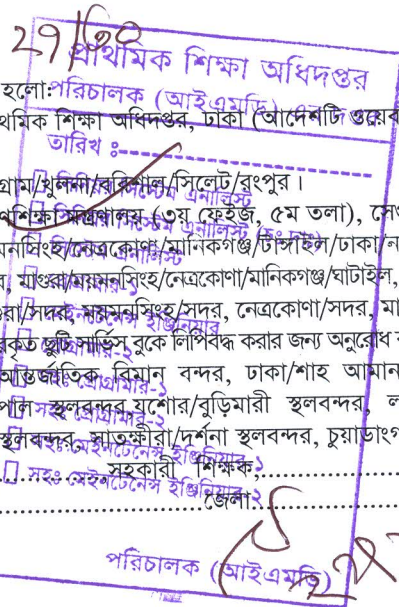 29/
প্রাথমিক শিক্ষা অধিদপ্তর
হলো:
পরিচালক (আইএমডি)
থমিক শিক্ষা অধিদপ্তর, ঢাকা (আদেশটি ওয়েব
তারিখ ঃ
গ্রাম/খুলনা/বরিশাল/সিলেট/রংপুর ।
সিস্টেম এনালিস্ট
(৩য় ফেইজ, ৫ম তলা),
মনসিংহ/নেত্রকোণা/মানিকগঞ্জ/টাঙ্গাইল/ঢাকা/
মাগুরা/ময়মনসিংহ/নেত্রকোণা/মানিকগঞ্জ/ঘাটাইল,
রা/সদর, ময়মনসিংহ/সদর, নেত্রকোণা/সদর, মা
মেইনটেনেন্স ইঞ্জিনিয়ার
ছুটি সার্ভিস বুকে লিপিবদ্ধ করার জন্য অনুরোধ
প্রোগ্রামার-২
আন্তর্জাতিক বিমান বন্দর, ঢাকা/শাহ আমান
সহঃ প্রোগ্রামার-১
স্থলবন্দর যশোর/বুড়িমারী স্থলবন্দর, ল
সহঃ প্রোগ্রামার-২
স্থলবন্দর, সাতক্ষীরা/দর্শনা স্থলবন্দর, চুয়াডাংগ
সহঃ মেইনটেনেন্স ইঞ্জিনিয়ার-১
সহকারী শিক্ষক,
সহঃ মেইনটেনেন্স ইঞ্জিনিয়ার-২
জেলা
পরিচালক (আইএমডি)